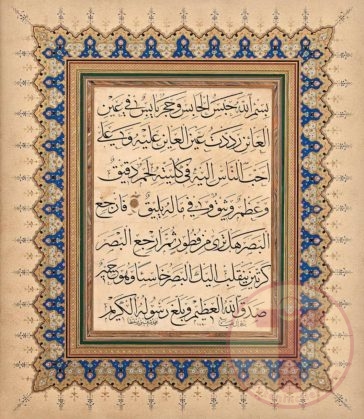 بسم الله حبس الحابس وحجر يابس في عين
العاين رددت عين العاين عليه وعلى
احب الناس اليه في كليته لحم دقيق
وعظم وفي ماله يليق فارجع
البصر هل ترى من فطور ثم ارجع البصر
كرتين ينقلب اليك البصر خاسئا وهو حسير
صدق الله العظيم وبلغ رسوله الكريم